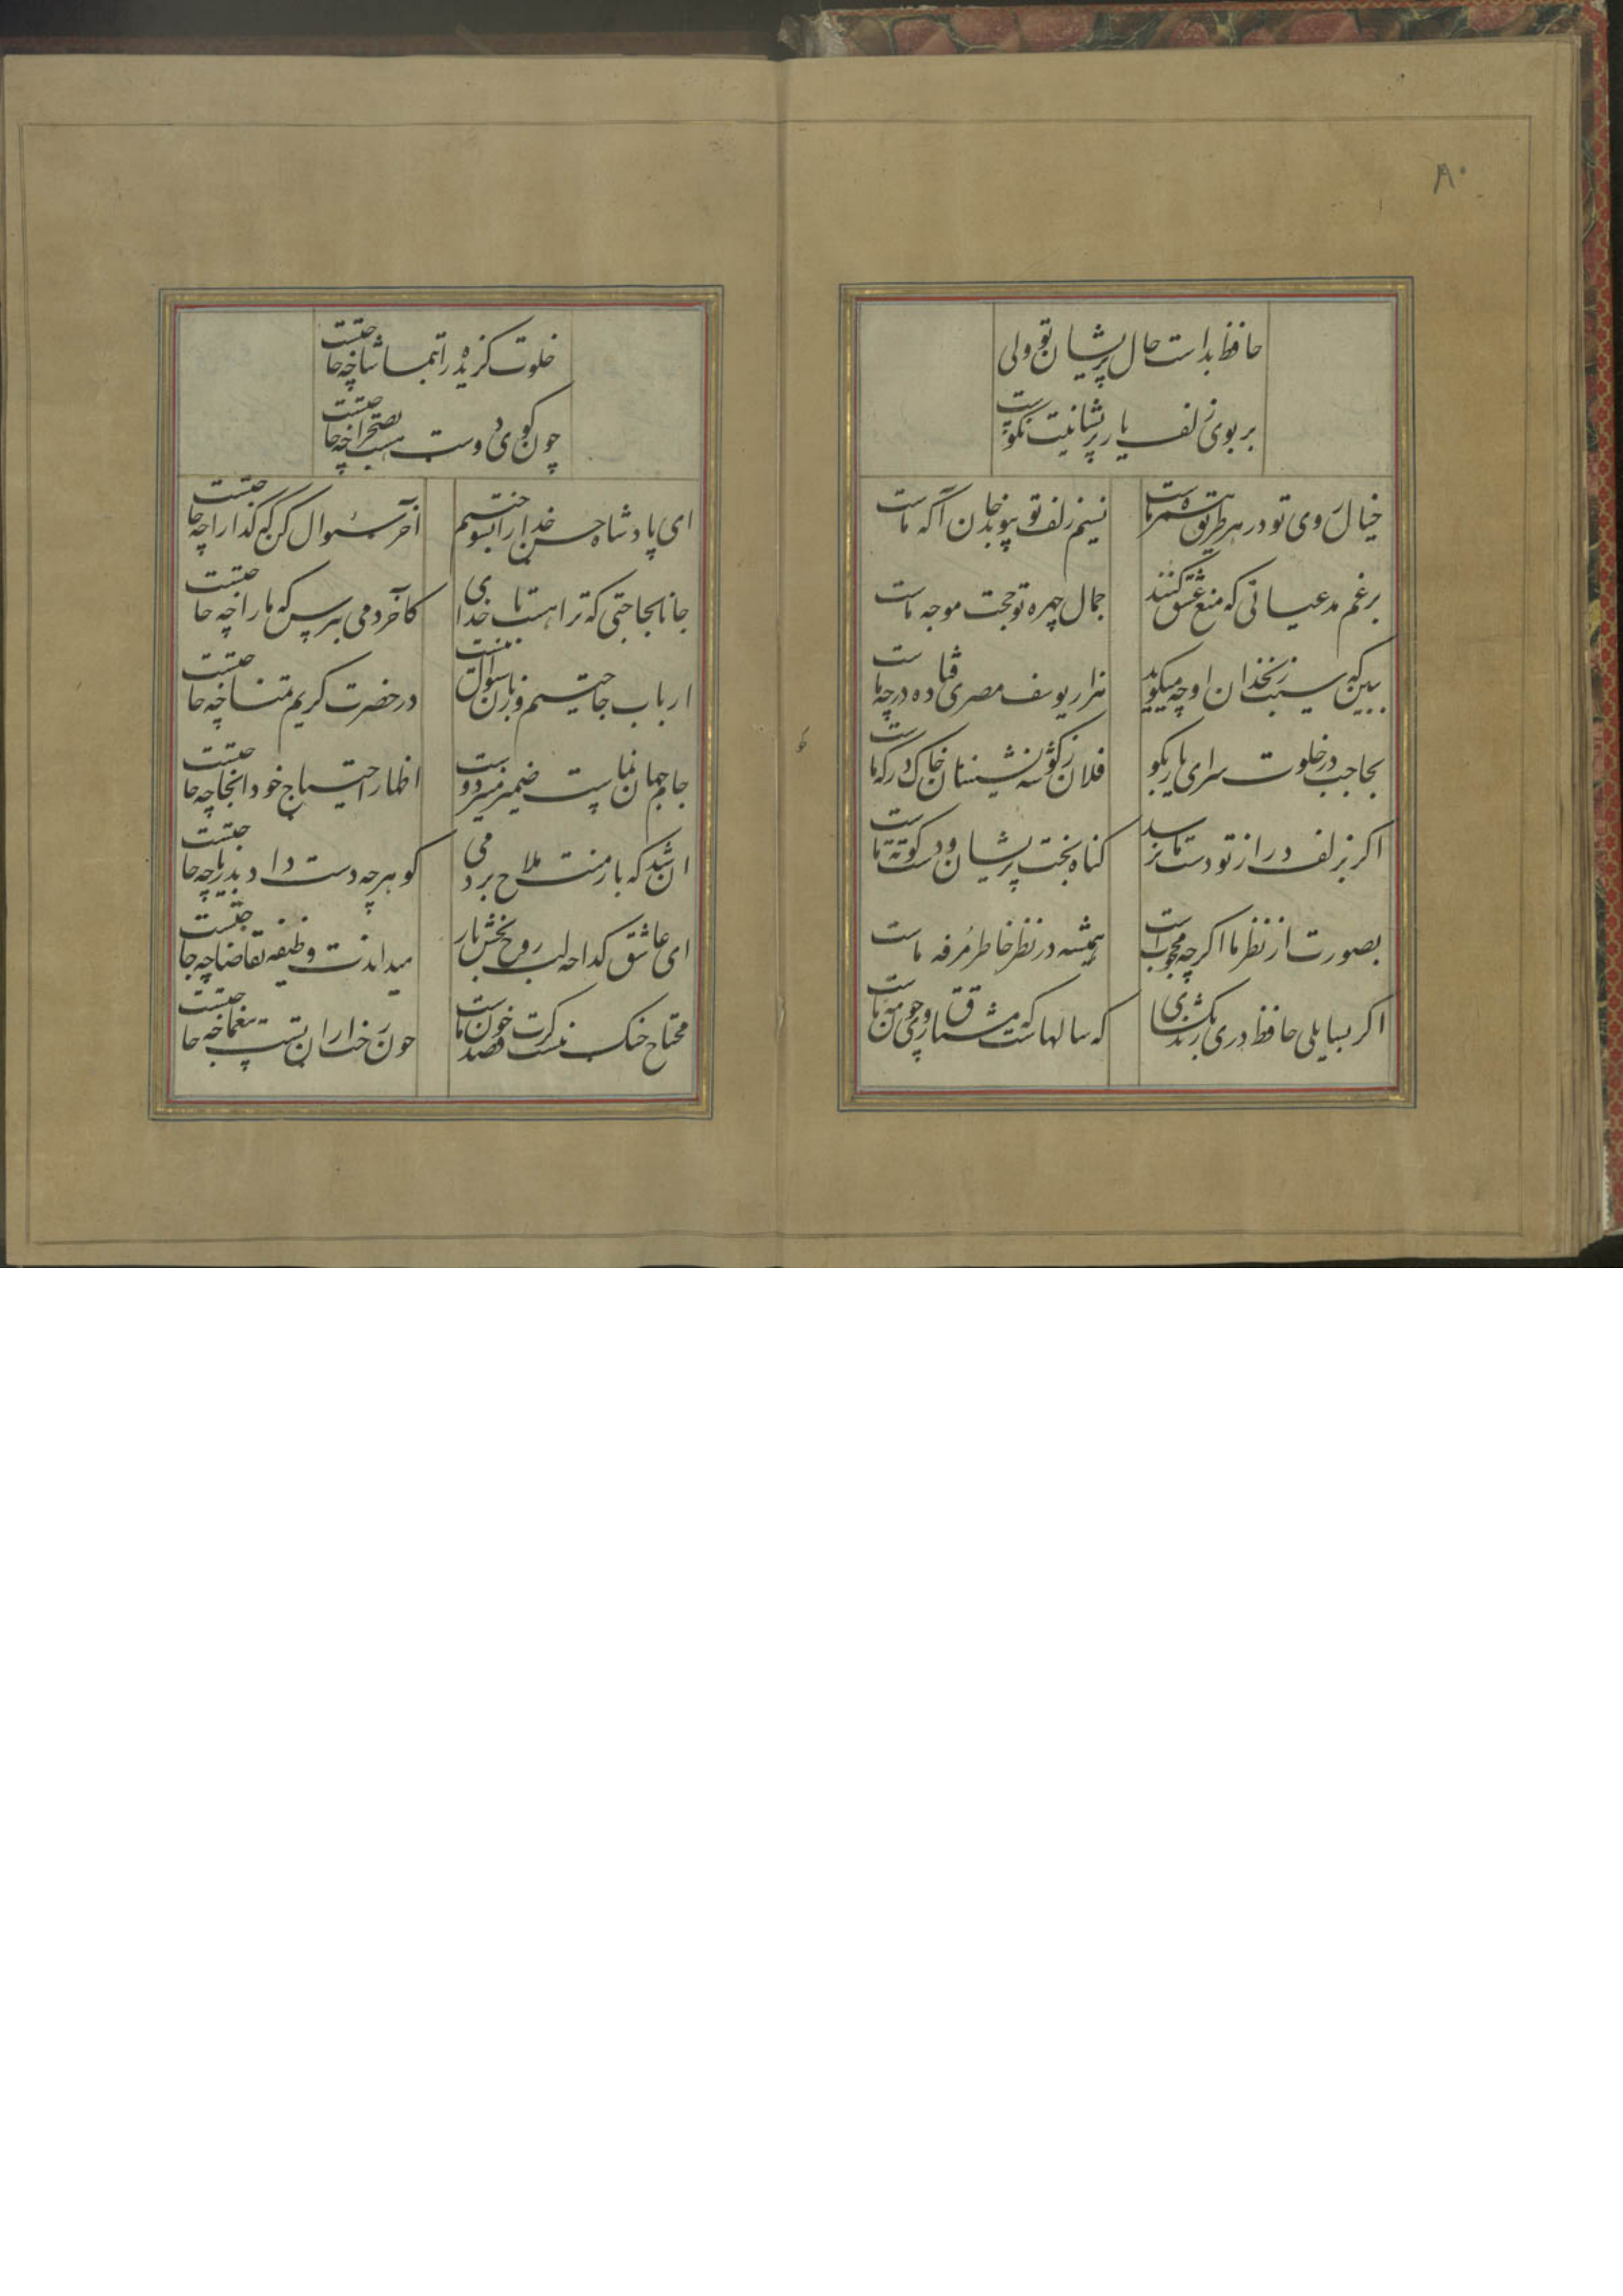 ۸۰
حافظ بداست حال پریشان تو ولی
بر بوی زلف یار پریشانیت نکوست
خیال روی تو در هر طریق همره ماست
نسیم زلف تو پیوند جان آگه ماست
برغم مدعیانی که منع عشق کنند
جمال چهره تو حجت موجه ماست
ببین که سیب زنخدان او چه میکوید
هزار یوسف مصری فتاده در چه ماست
بحاجب در خلوت سرای یار بکو
فلان ز کوشه نشینان خاک درکه ماست
اکر بزلف دراز تو دست ما نرسد
کناه بخت پریشان و دست کوته ماست
بصورت از نظر ما اکرچه محجوب است
همیشه در نظر خاطر مرفه ماست
اکر بسایلی حافظ دری زند بکشای
که سالهاست که مشتاق روی چون مه ماست
خلوت کزیده را بتماشا چه حاجتست
چون کوی دوست هست بصحرا چه حاجتست
ای پادشاه حسن خدا را بسوختیم
آخر سؤال کن که کدا را چه حاجتست
جانا بحاجتی که ترا هست با خدای
کآخر دمی بپرس که ما را چه حاجتست
ارباب حاجتیم و زبان سؤال نیست
در حضرت کریم تمنا چه حاجتست
جام جهان نماست ضمیر منیر دوست
اظهار احتیاج خود آنجا چه حاجتست
ان شد که بار منت ملاح بردمی
کوهر چه دست داد بدریا چه حاجتست
ای عاشق کدا چه لب روح بخش یار
میداندت وظیفه تقاضا چه حاجتست
محتاج جنک نیست کرت قصد خون ماست
چون رخت از ان تست بیغما چه حاجتست